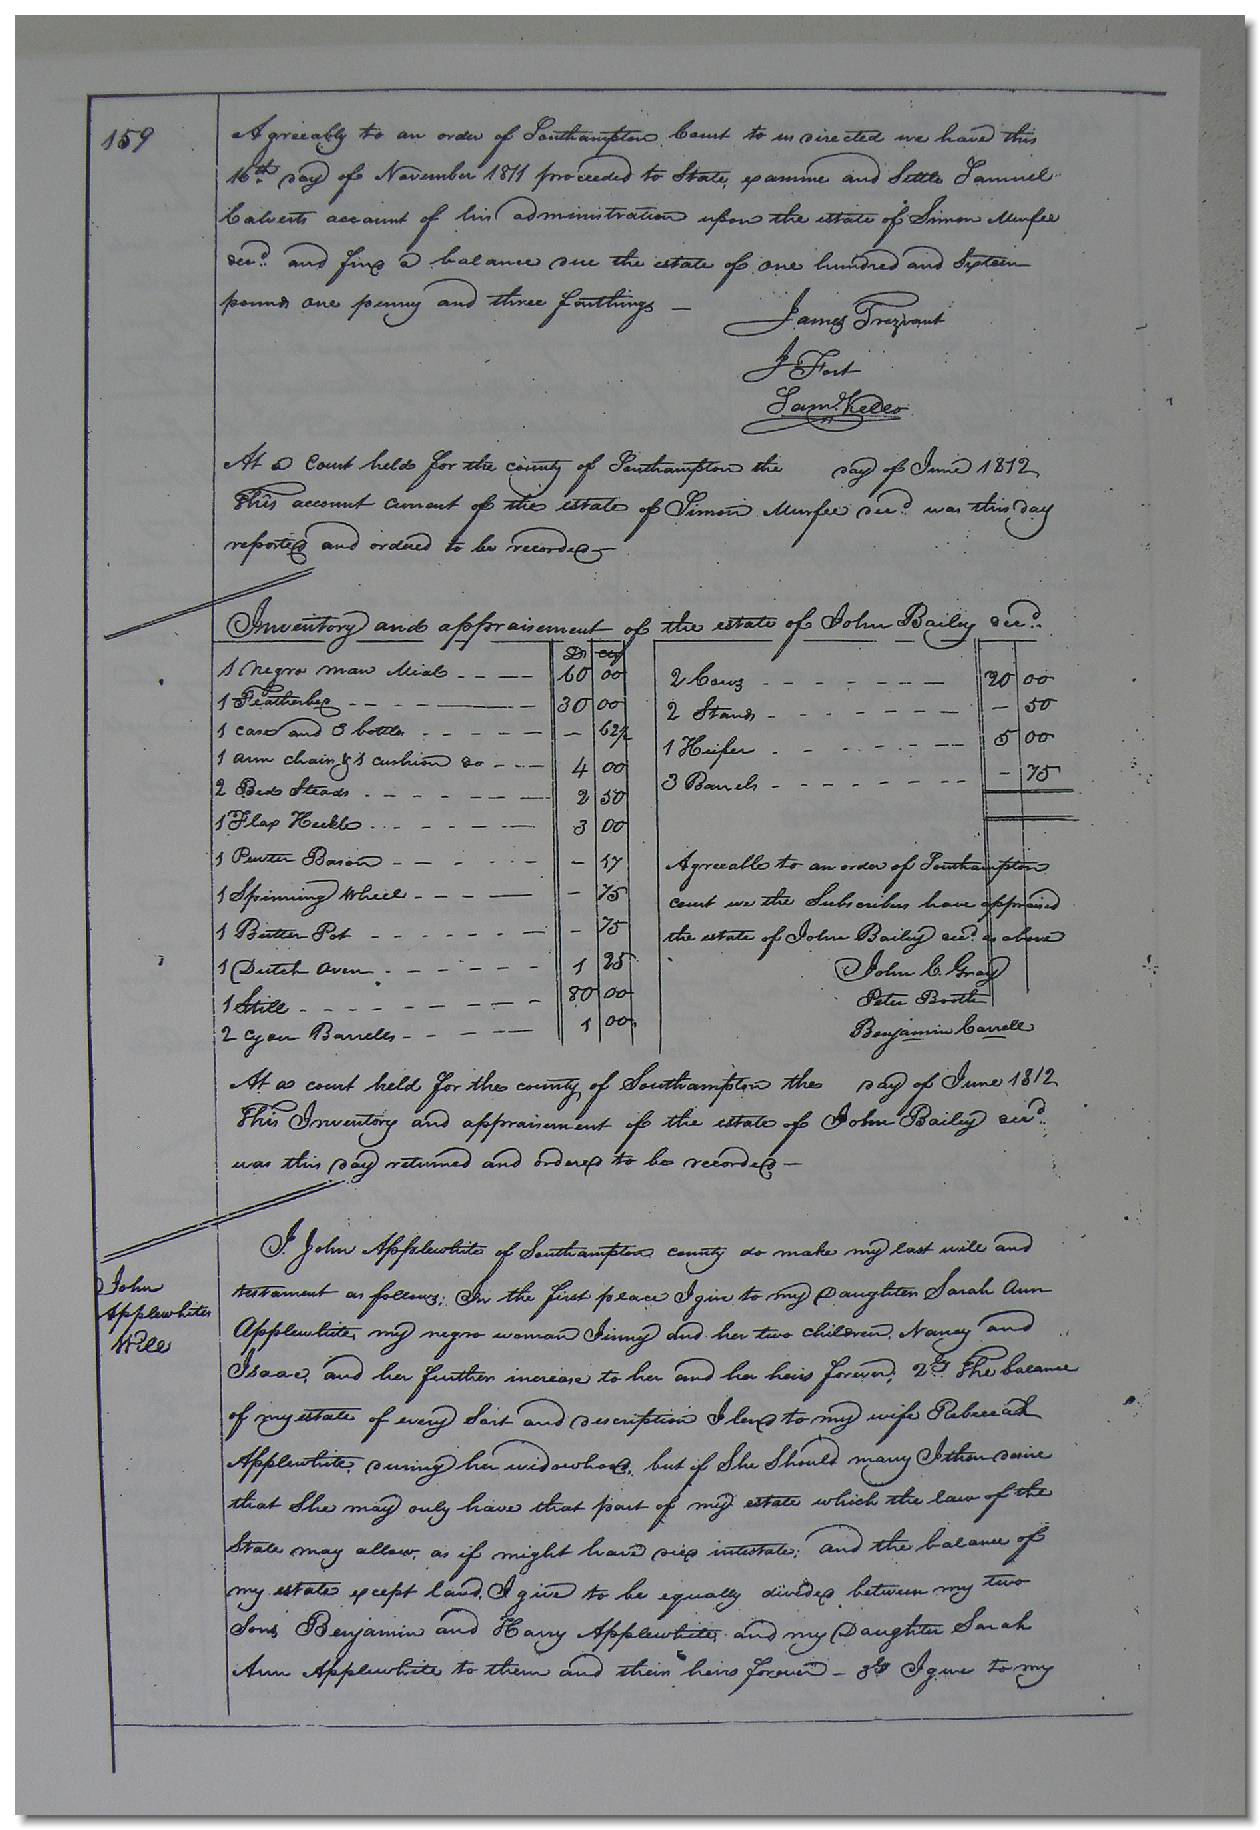 159
Agreeably to an order of Southampton Court to us directed we have this
16th day of November 1811 proceeded to State, examine and Settle Samuel
Calverts account of his administration upon the estate of Simon Murfee
decd. and find a balance due the estate of one hundred and Sixteen
pounds one penny and three farthings —
James Trezvant
J Fort
Saml. Kello
At a Court held for the county of Southampton the day of June 1812
This account current of the estate of Simon Murfee decd. was this day
reported and ordered to be recorded —
Inventory and appraisement of the estate of John Bailey decd.
Ds Cts
1 Negro man Mial - - - - 60 00
1 Featherbed - - - - 30 00
1 case and 3 bottles - - - - - 62½
1 arm chair & 1 cushion do - - - 4 00
2 Bed Steads - - - - 2 50
1 Flax Heckle - - - - 3 00
1 Pewter Bason - - - - - 17
1 Spinning Wheel - - - - - 75
1 Butter Pot - - - - - 75
1 Dutch oven - - - - 1 25
1 Still - - - - 80 00
2 Cyder Barrells - - - - 1 00
2 Cows - - - - 20 00
2 Stands - - - - - 50
1 Heifer - - - - 5 00
3 Barrels - - - - - 75
Agreeable to an order of Southampton
court we the Subscribers have appraised
the estate of John Bailey decd. as above
John C. Gray
Peter Booth
Benjamin Carrell
At a court held for the county of Southampton the day of June 1812
This Inventory and appraisement of the estate of John Bailey decd.
was this day returned and ordered to be recorded —
John
Applewhites
Will
I. John Applewhite of Southampton county do make my last will and
testament as follows; In the first place I give to my Daughter Sarah Ann
Applewhite, my negro woman Jinny and her two children, Nancy and
Isaac, and her further increase to her and her heirs forever; 2d The balance
of my estate of every Sort and description I lend to my wife Rebeccah
Applewhite, during her widowhood, but if She Should marry I then desire
that She may only have that part of my estate which the law of the
State may allow, as if might have died intestate; and the balance of
my estate except land, I give to be equally divided between my two
Sons Benjamin and Harry Applewhite and my Daughter Sarah
Ann Applewhite to them and their heirs forever — 3dly I give to my